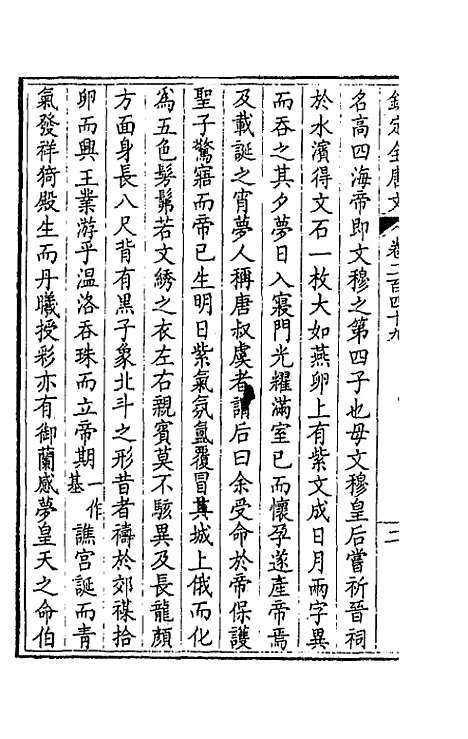 欽定全唐文 卷二百四十九 二
名高四海帝即文穆之第四子也母文穆皇后嘗祈晉祠
於水濱得文石一枚大如燕卵上有紫文成日月兩字異
而吞之其夕夢日入寢門光耀滿室已而懷孕遂產帝焉
及載誕之宵夢人稱唐叔虞者謂后曰余受命於帝保護
聖子驚寤而帝已生明日紫氣氛氳覆冒其城上俄而化
為五色髣髴若文綉之衣左右親賓莫不駭異及長龍顏
方面身長八尺背有黑子象北斗之形昔者禱於郊禖拾
卵而興王業游乎溫洛吞珠而立帝期一作基譙宮誕而青
氣發祥猗殿生而丹曦授彩亦有御蘭感夢皇天之命伯